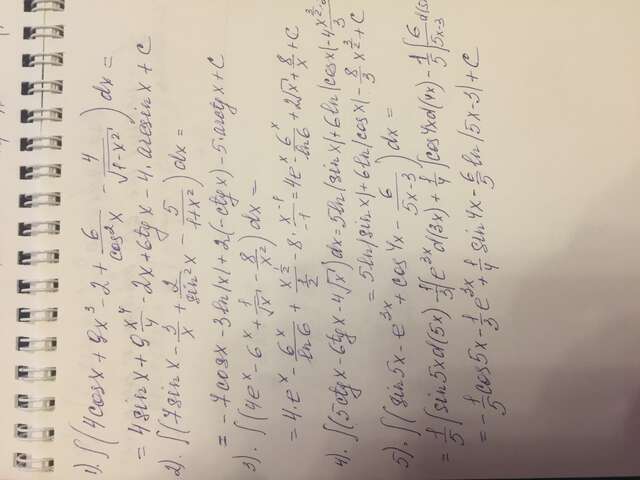 1). ∫(4cosx + 9x³ - 2 + 6/cos²x - 4/√(1-x²)) dx =
= 4sinx + 9 x⁴/4 - 2x + 6tgx - 4·arcsinx + C
2). ∫(7sinx - 3/x + 2/sin²x - 5/(1+x²)) dx =
= -7cosx - 3ln|x| + 2(-ctgx) - 5·arctgx + C
3). ∫(4eˣ - 6ˣ + 1/√x - 8/x²) dx =
= 4·eˣ - 6ˣ/ln6 + x^(1/2)/(1/2) - 8·x⁻¹/-1 = 4eˣ - 6ˣ/ln6 + 2√x + 8/x + C
4). ∫(5ctgx - 6tgx - 4√x) dx = 5ln|sinx| + 6ln|cosx| - 4 x^(3/2)·2/3
= 5ln|sinx| + 6ln|cosx| - 8/3 x^(3/2) + C
5). ∫(sin5x - e^(3x) + cos4x - 6/(5x-3)) dx =
= 1/5 ∫sin5xd(5x) - 1/3 ∫e^(3x) d(3x) + 1/4 ∫cos4xd(4x) - 1/5 ∫6/(5x-3) d(5
= -1/5 cos5x - 1/3 e^(3x) + 1/4 sin4x - 6/5 ln|5x-3| + C